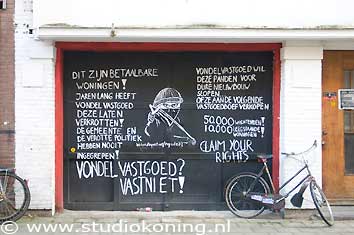 DIT ZIJN BETAALBARE
WONINGEN!
JARENLANG HEEFT
VONDEL VASTGOED
DEZE LATEN
VERKROTTEN!
DE GEMEENTE EN
DE VEROTTE POLITIEK
HEBBEN NOOIT
INGEGREPEN!
VONDEL VASTGOED?
VAST NIET!
VONDEL VASTGOED WIL
DEZE PANDEN VOOR
DURE NIEUWBOUW
SLOPEN
OF ZE AAN DE VOLGENDE
VASTGOEDBOEF VERKOPEN
50.000
10.000
LEEGSTAANDE
WONINGEN!
CLAIM YOUR
RIGHTS
www.studiokoning.nl ©